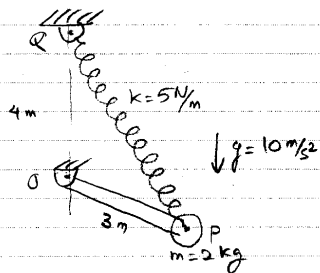 Q
k=5N/m
4m
g=10 m/s²
O
3m
P
m=2kg